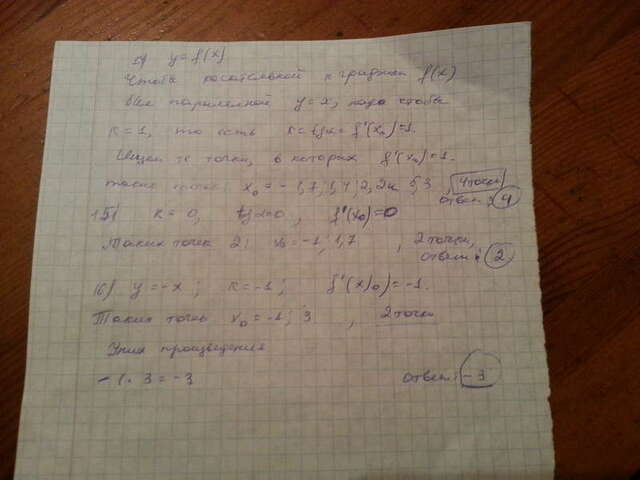 y = f(x)
Чтобы касательной к графики f(x)
был параллельной y = x, надо чтобы
k = 1, то есть k = tgα = f'(x₀) = 1.
Ищем те точки, в которых f'(x₀) = 1.
такие точки: x₀ = -1,7; 1,4; 2,2 и 5,3, 4 точки
ответ: 4
15) k = 0, tgα = 0, f'(x₀) = 0
Таких точек 2: x₀ = -1; 1,7, 2 точки,
ответ: 2
16) y = -x; k = -1; f'(x)₀ = -1.
Таких точек x₀ = -1; 3, 2 точки
произведения
-1 · 3 = -3 ответ: -3